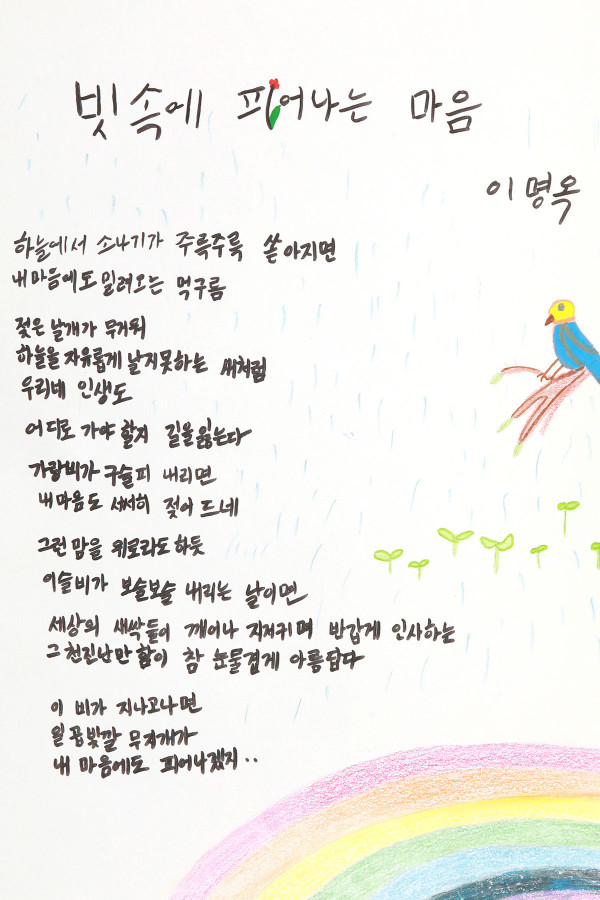 빗속에 피어나는 마음
이명옥
하늘에서 소나기가 주륵주륵 쏟아지면
내 마음에도 밀려오는 먹구름
젖은 날개가 무거워
하늘을 자유롭게 날지못하는 새처럼
우리네 인생도
어디로 가야 할지 길을 잃는다
가랑비가 구슬피 내리면
내 마음도 서서히 젖어 드네
그런 맘을 위로라도 하듯
이슬비가 보슬보슬 내리는 날이면
세상의 새싹들이 깨어나 지저귀며 반갑게 인사하는
그 천진난만함이 참 눈물겹게 아름답다
이 비가 지나고나면
일곱빛깔 무지개가
내 마음에도 피어나겠지··